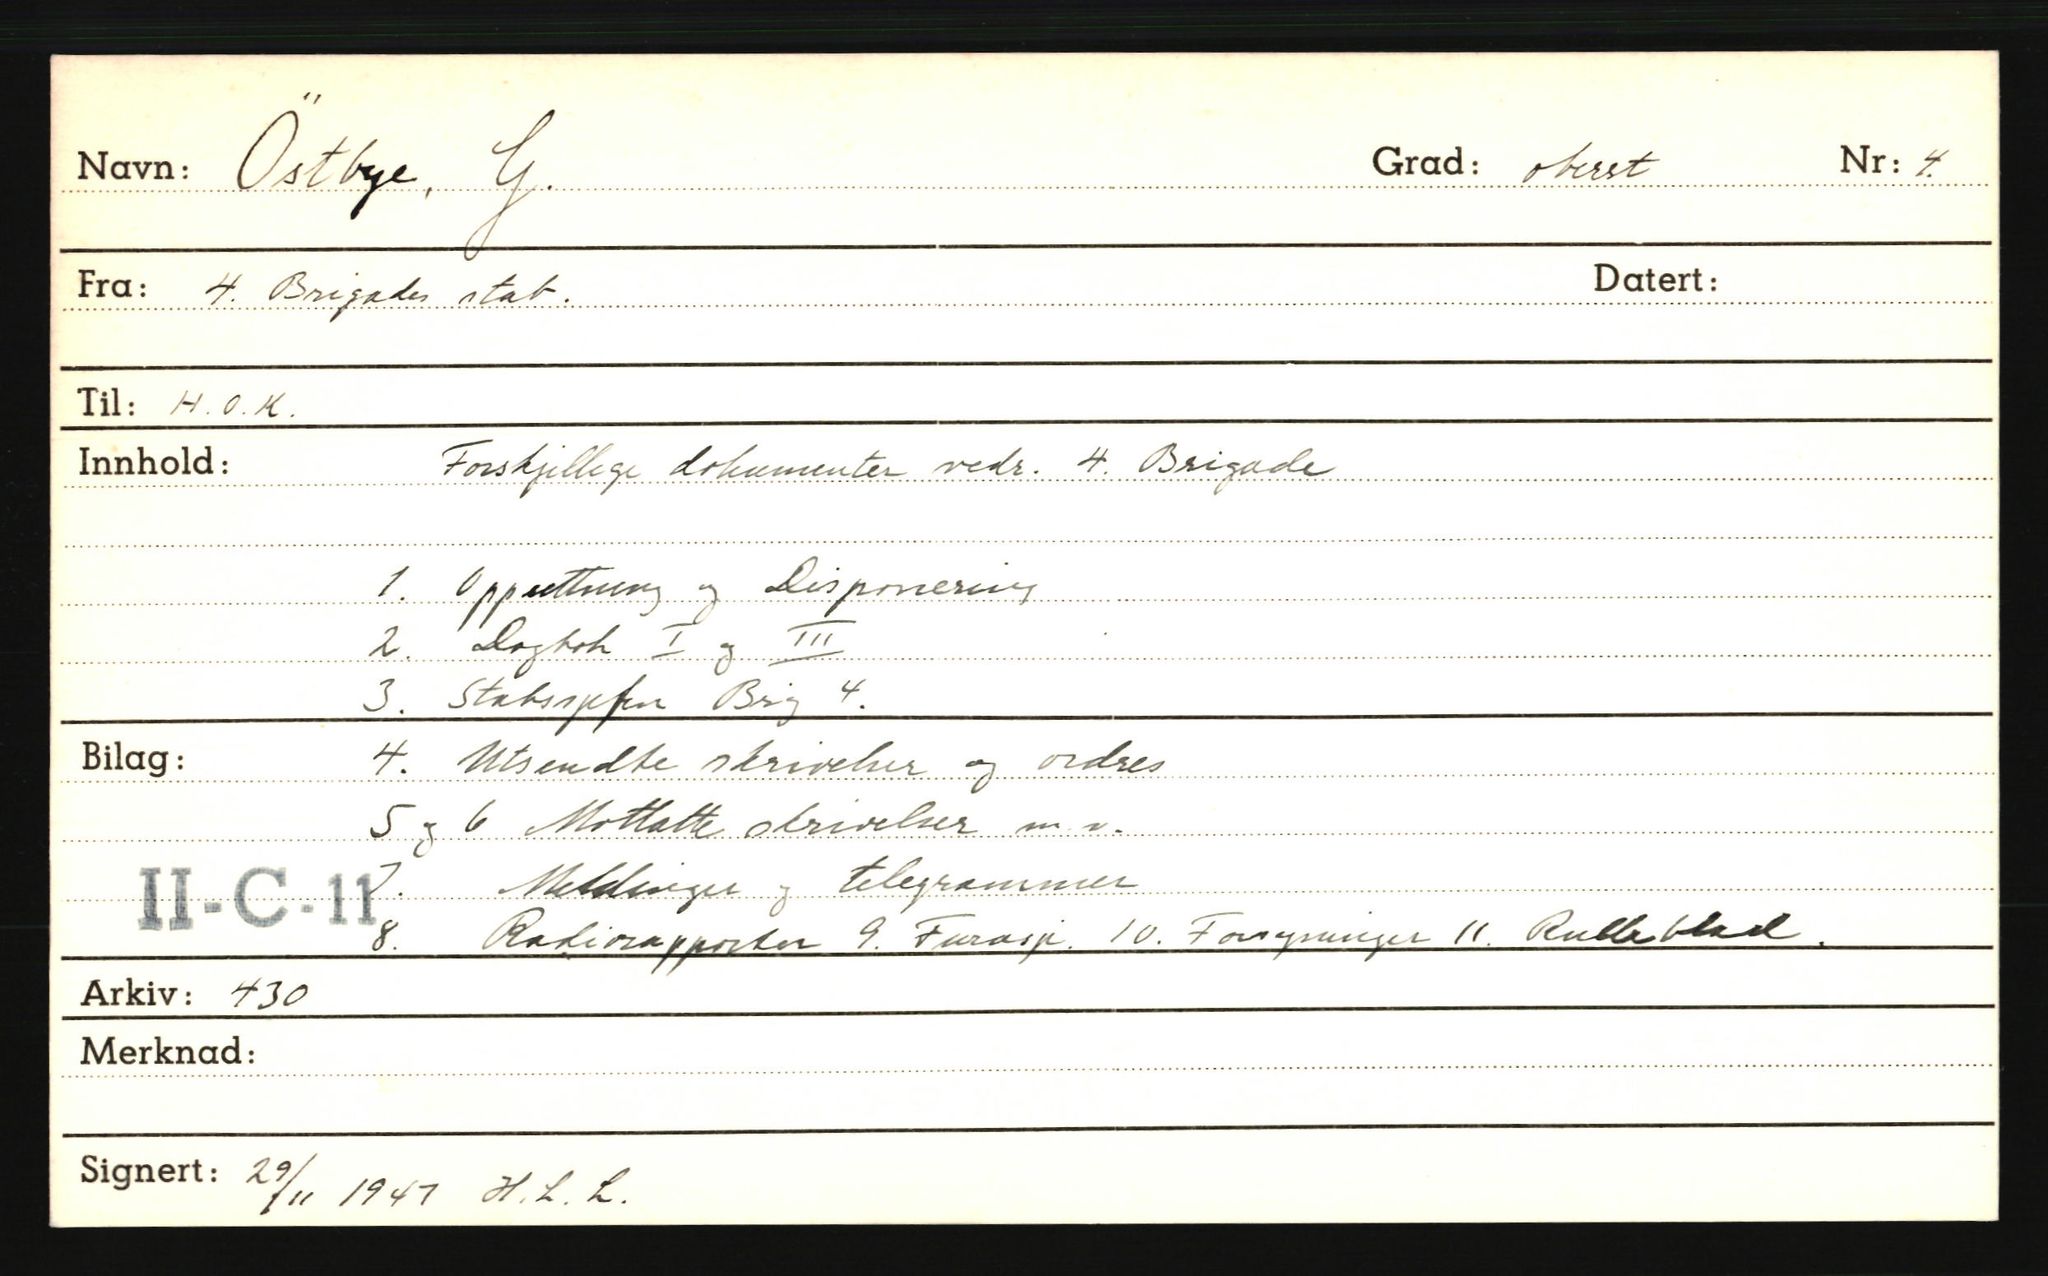 Navn: Östbye, G. Grad: oberst Nr: 4.
Fra: 4. Brigades stab. Datert:
Til: H.O.K.
Innhold: Forskjellige dokumenter vedr. 4. Brigade
1. Oppsettning og Disponering
2. Dagbok I og III
3. Stabssjefen Brig 4.
Bilag: 4. Utsendte skrivelser og ordres
5 og 6 Mottatte skrivelser m.v.
II-C-11 7. Meldinger og telegrammer
8. Radiorapporter 9. 10. Forsyninger 11. Rulleblad.
Arkiv: 430
Merknad:
Signert: 29/11 1947 H.L.L.